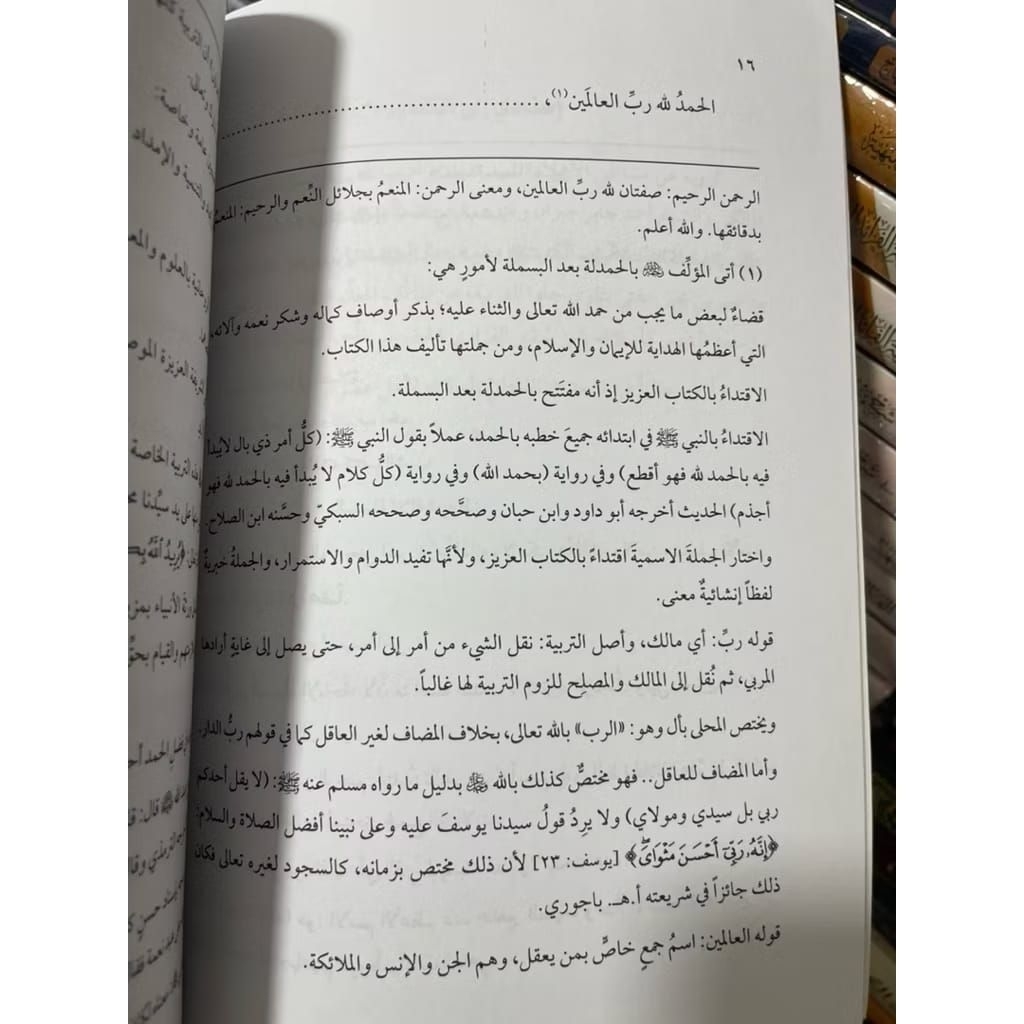 ١٦
الحمدُ لله ربِّ العالَمين(١)، ........................................
الرحمن الرحيم: صفتان لله ربِّ العالمين، ومعنى الرحمن: المنعمُ بجلائل النِّعم والرحيم: المنعمُ
بدقائقها. والله أعلم.
(١) أتى المؤلِّف ﵀ بالحمدلة بعد البسملة لأمورٍ هي:
قضاءٌ لبعض ما يجب من حمد الله تعالى والثناء عليه؛ بذكر أوصاف كماله وشكر نعمه وآلائه،
التي أعظمُها الهداية للإيمان والإسلام، ومن جملتها تأليف هذا الكتاب.
الاقتداءُ بالكتاب العزيز إذ أنه مفتَتَح بالحمدلة بعد البسملة.
الاقتداءُ بالنبي ﷺ في ابتدائه جميعَ خطبه بالحمد، عملاً بقول النبي ﷺ: (كلُّ أمر ذي بال لايُبدأ
فيه بالحمد لله فهو أقطع) وفي رواية (بحمد الله) وفي رواية (كلُّ كلام لا يُبدأ فيه بالحمد لله فهو
أجذم) الحديث أخرجه أبو داود وابن حبان وصحَّحه وصححه السبكيّ وحسَّنه ابن الصلاح.
واختار الجملةَ الاسميةَ اقتداءً بالكتاب العزيز، ولأنَّها تفيد الدوام والاستمرار، والجملةُ خبريةٌ
لفظاً إنشائيةٌ معنى.
قوله ربِّ: أي مالك، وأصل التربية: نقل الشيء من أمر إلى أمر، حتى يصل إلى غايةٍ أرادها
المربي، ثم نُقل إلى المالك والمصلِح للزوم التربية لها غالباً.
ويختص المحلى بأل وهو: «الرب» بالله تعالى، بخلاف المضاف لغير العاقل كما في قولهم ربُّ الدار.
وأما المضاف للعاقل.. فهو مختصٌّ كذلك بالله ﷻ بدليل ما رواه مسلم عنه ﷺ: (لا يقل أحدكم
ربي بل سيدي ومولاي) ولا يرِدُ قولُ سيدنا يوسفَ عليه وعلى نبينا أفضل الصلاة والسلام:
﴿إِنَّهُۥ رَبِّيٓ أَحْسَنَ مَثْوَايَۖ﴾ [يوسف: ٢٣] لأن ذلك مختص بزمانه، كالسجود لغيره تعالى فكان
ذلك جائزاً في شريعته أ.هـ. باجوري.
قوله العالمين: اسمُ جمعٍ خاصٌّ بمن يعقل، وهم الجن والإنس والملائكة.